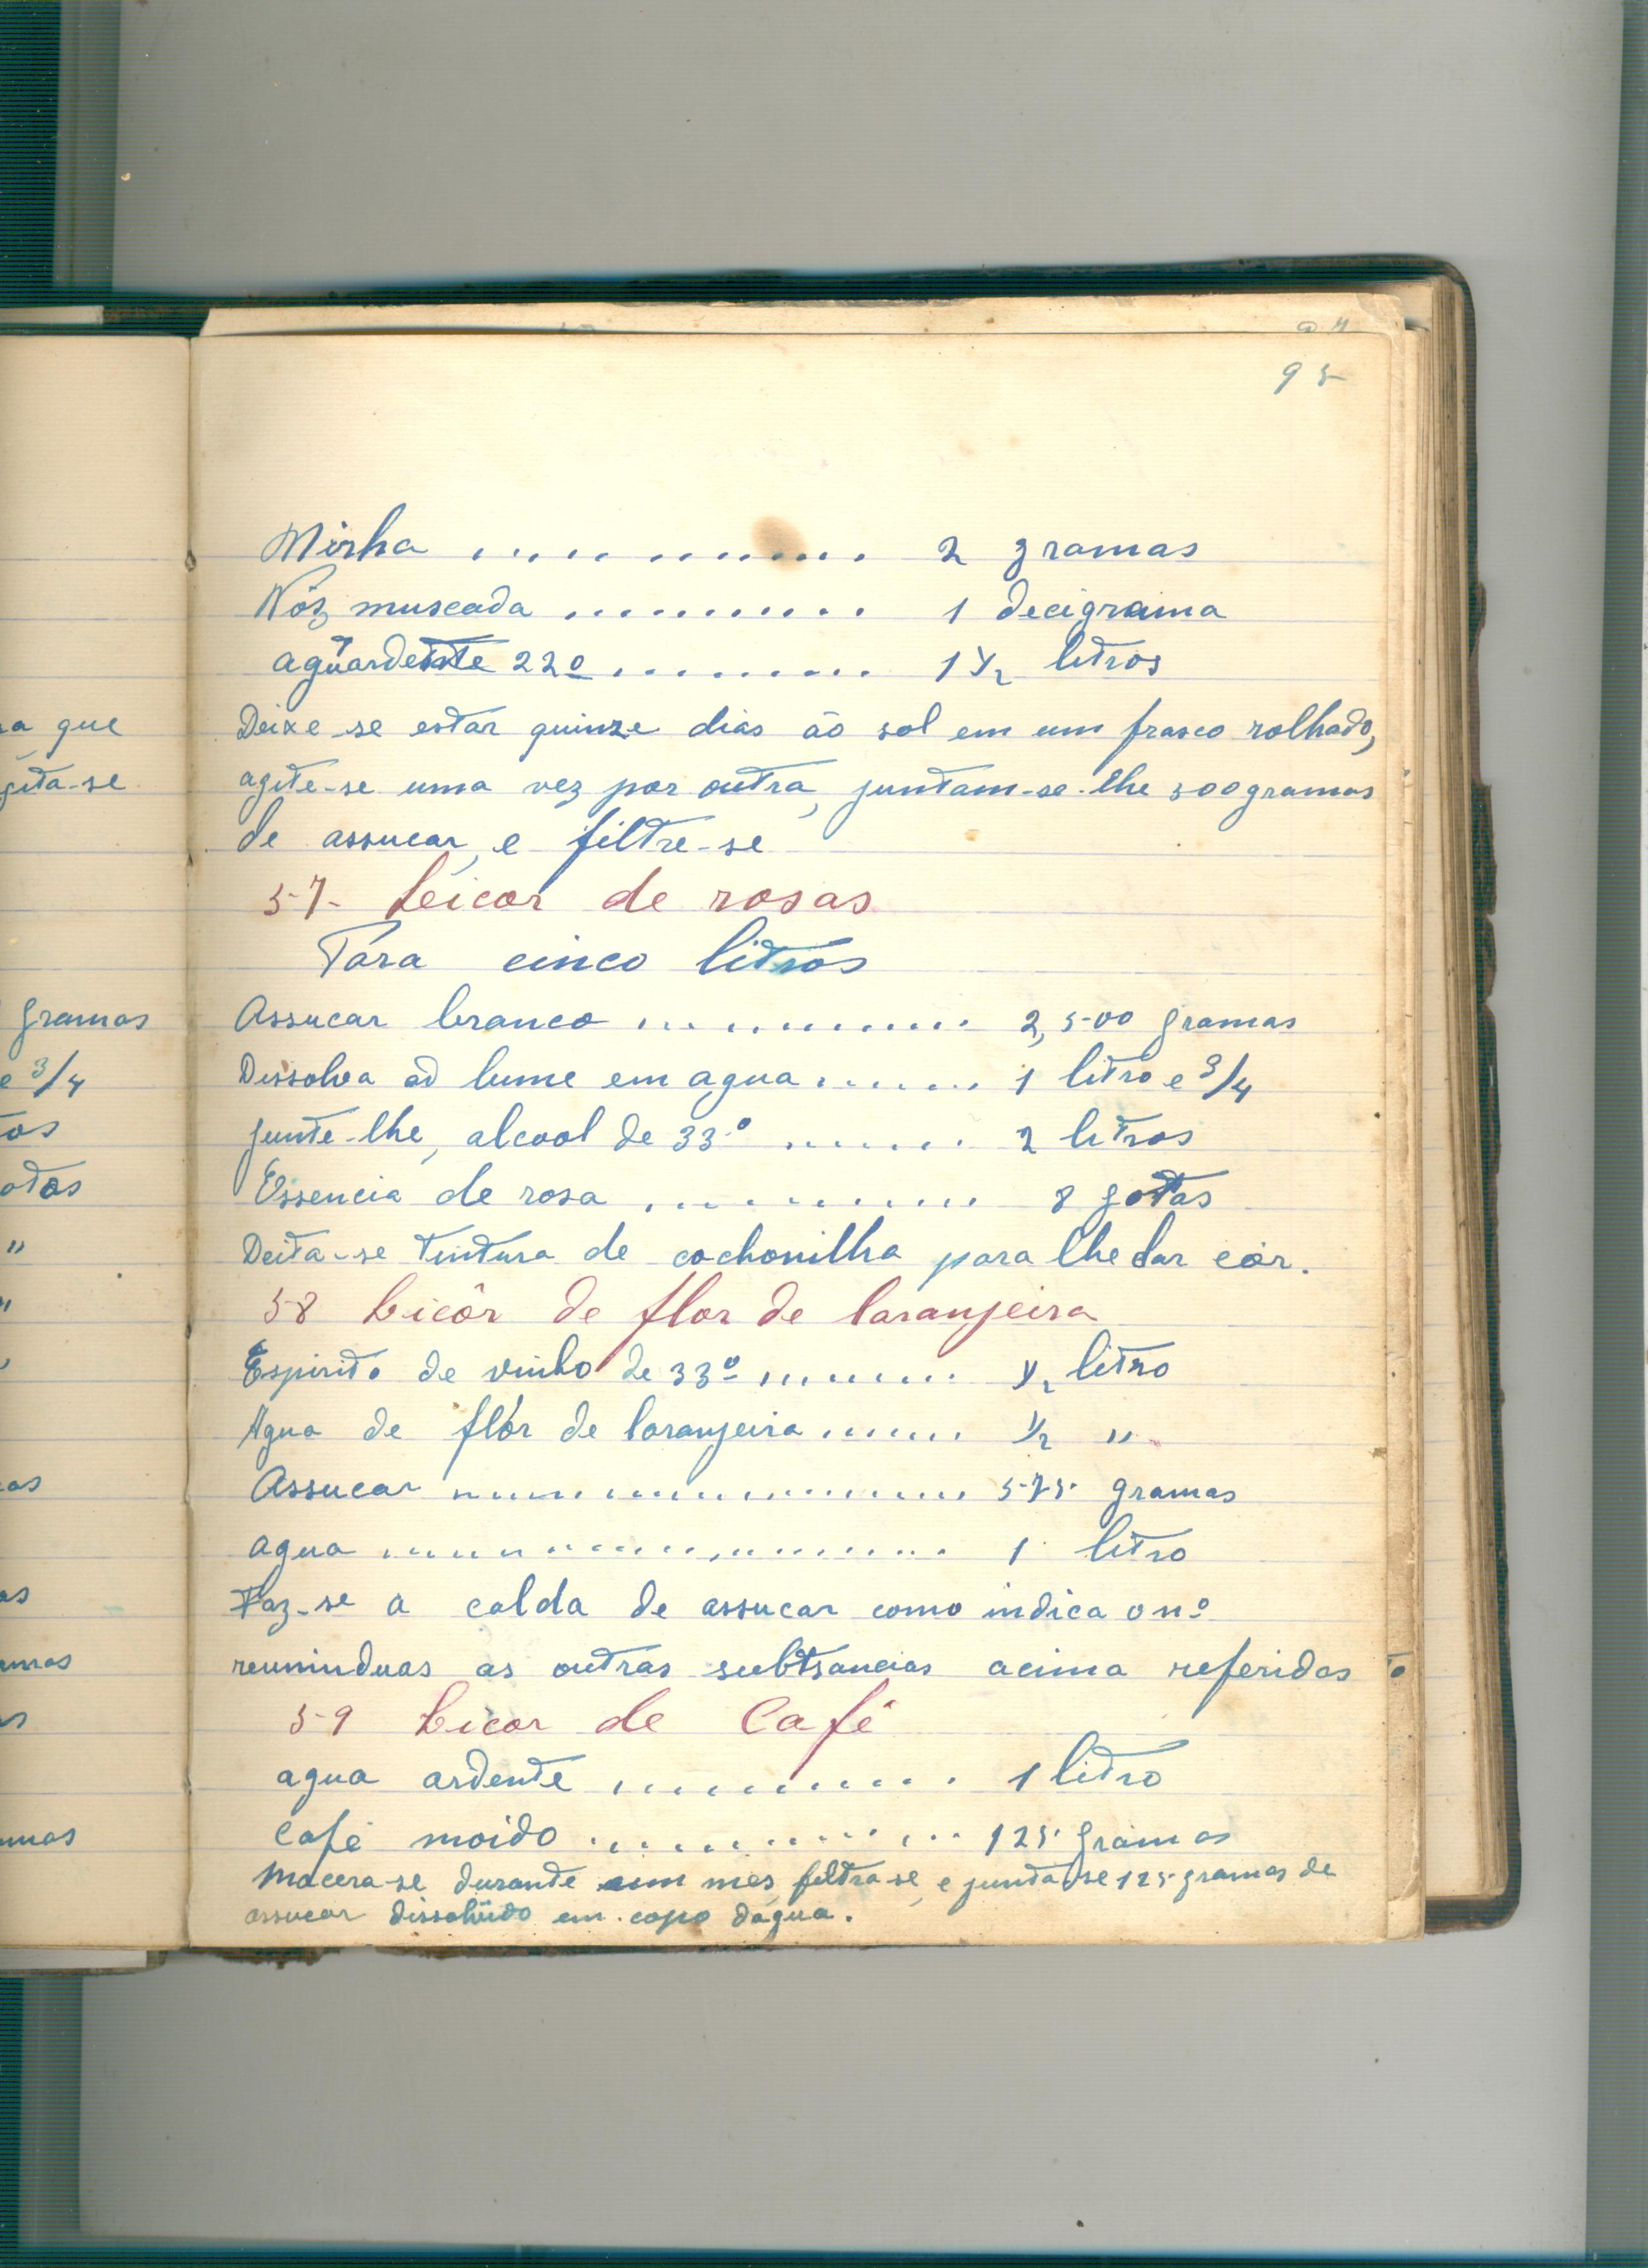 95
Mirha ............ 2 gramas
Nóz muscada .......... 1 decigrama
aguardente 22º ......... 1 1/2 litros
Deixe-se estar quinze dias áo sol em um frasco rolhado,
agite-se uma vez por outra, juntam-se-lhe 500 gramas
de assucar, e filtre-se
57- Leicor de rosas
Para cinco litros
Assucar branco ............ 2,500 gramas
Dissolva ao lume em agua ....... 1 litro e 3/4
junte-lhe, alcool de 33º ....... 2 litros
Essencia de rosa ............ 8 gotas
Deita-se tintura de cochonilha para lhe dar côr.
58 Licôr de flor de laranjeira
Espirito de vinho de 33º ......... 1/2 litro
Agua de flôr de laranjeira ....... 1/2 "
Assucar ...................... 575 gramas
agua ........................ 1 litro
Faz-se a calda de assucar como indica o nº
reuninduas as outras subtsancias acima referidas
59 Licor de Café
agua ardente ............ 1 litro
Café moido ............. 125 gramas
Macera-se durante um mes, filtra-se, e junta-se 125 gramas de
assucar dissolvido em copo dagua.
sa que
gita-se
gramas
e 3/4
tos
otas
"
"